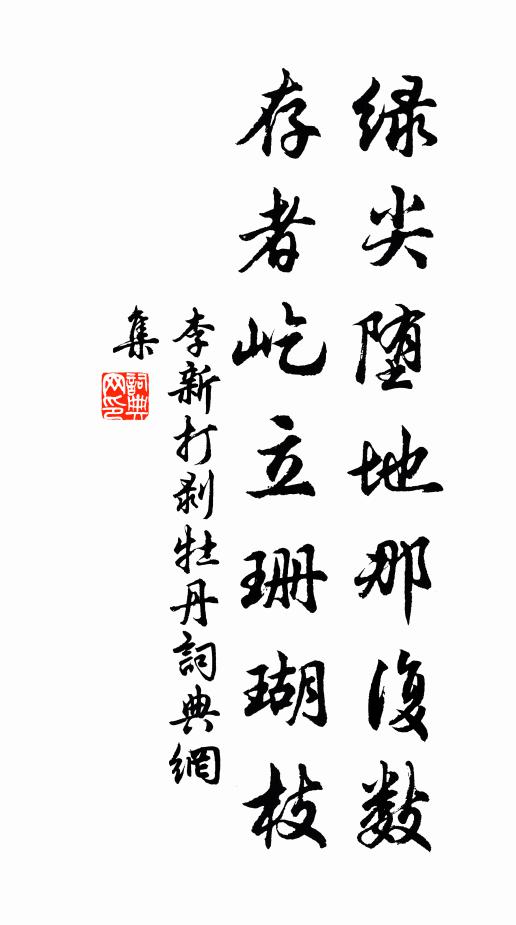 绿尖堕地那復数
存者屹立珊瑚枝
李新打剥牡丹詞典網
集
詞典网印